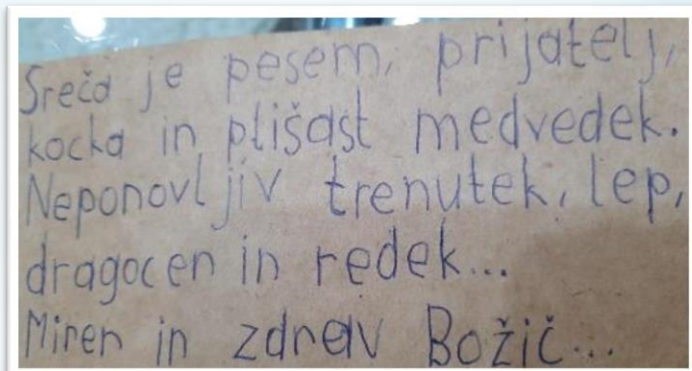 Sreča je pesem, prijatelj,
kocka in plišast medvedek.
Neponovljiv trenutek, lep,
dragocen in redek...
Miren in zdrav Božič...